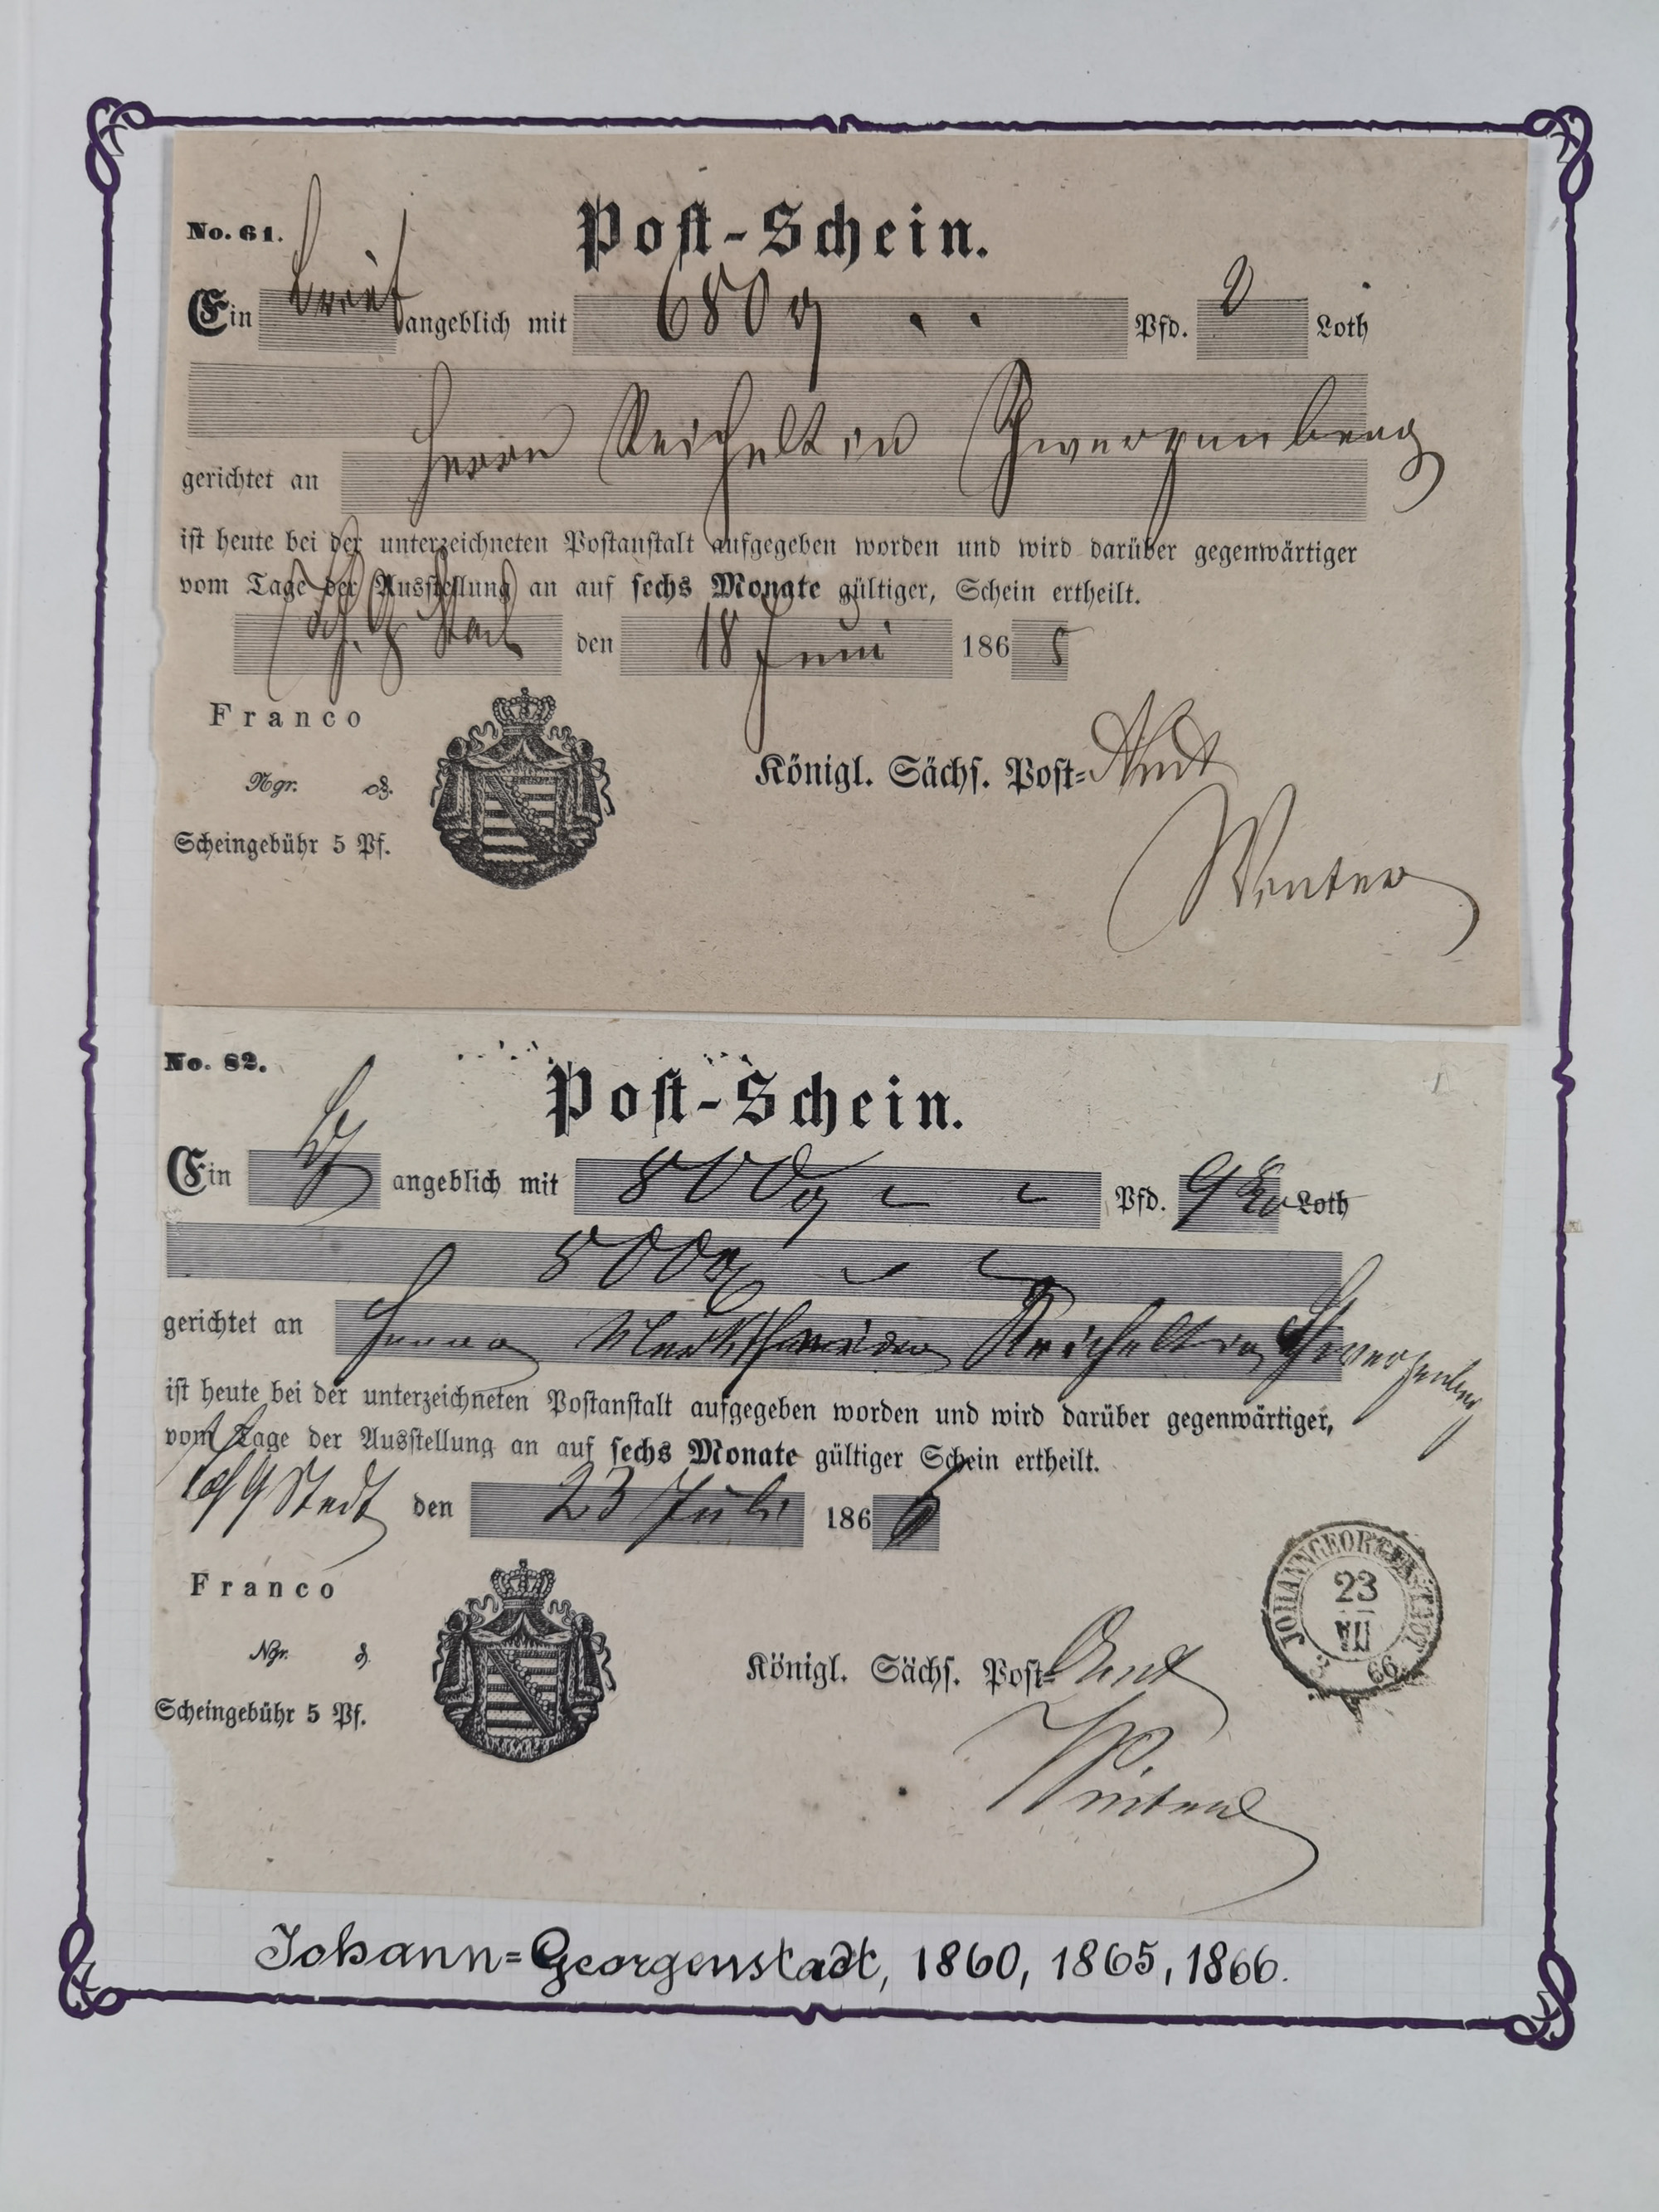 No. 61.
Post-Schein.
Ein Brief angeblich mit 680 Pfd. Loth
Herrn Reichelt in Schwarzenberg
gerichtet an
ist heute bei der unterzeichneten Postanstalt aufgegeben worden und wird darüber gegenwärtiger
vom Tage der Ausstellung an auf sechs Monate gültiger, Schein ertheilt.
den 18 Juni 1865
Franco
Königl. Sächs. Post-Amt
Ngr. ₰.
Scheingebühr 5 Pf.
Winter
No. 82.
Post-Schein.
Ein angeblich mit 800 Pfd. 9 Loth
800
gerichtet an Herrn Reichelt in Schwarzenberg
ist heute bei der unterzeichneten Postanstalt aufgegeben worden und wird darüber gegenwärtiger,
vom Tage der Ausstellung an auf sechs Monate gültiger Schein ertheilt.
den 23 Juli 1866
JOHANNGEORGENSTADT
23
VII
66
Franco
Königl. Sächs. Post-Amt
Ngr. ₰.
Scheingebühr 5 Pf.
Winter
Johann=Georgenstadt, 1860, 1865, 1866.